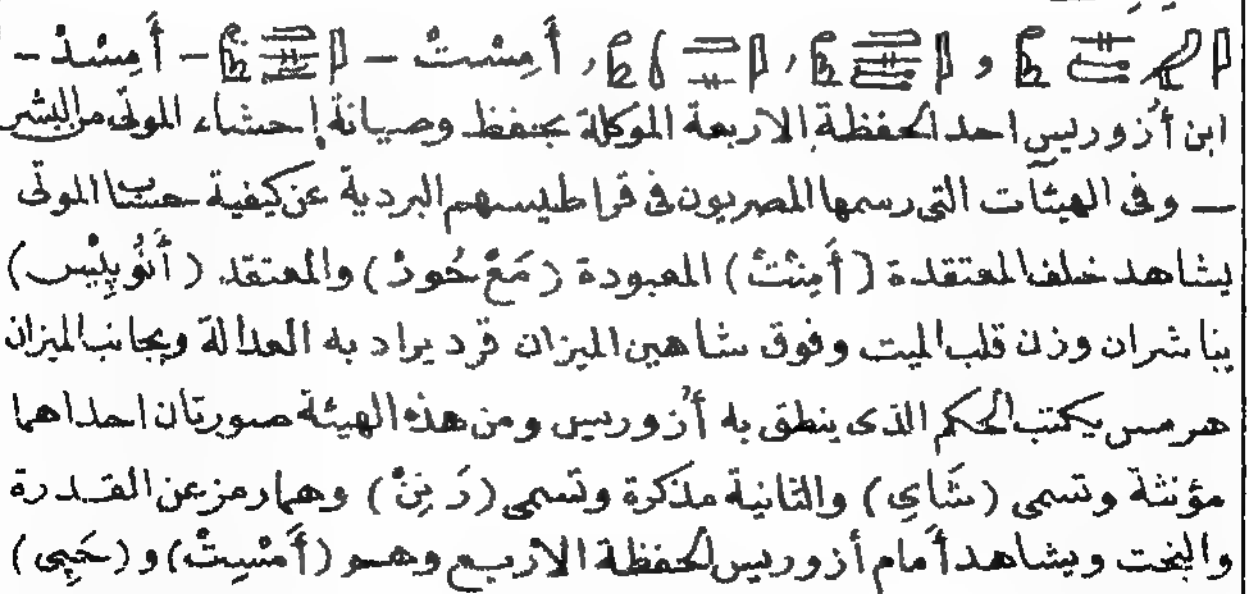 و ، ، أَمِسْتْ – – أَمِسْدْ –
ابن أُزوريس احد الحفظة الاربعة الموكلة بحفظ وصيانة إحشاء الموتى من البشر
— وفى الهيئآت التى رسمها المصريون فى قراطيسهم البردية عن كيفية حساب الموتى
يشاهد خلف المعتقدة (أَمِنْتْ) المعبودة (مَعْ حُورْ) والمعتقد (أَنُوبِيْس)
يباشران وزن قلب الميت وفوق شاهين الميزان قرد يراد به العدالة وبجانب الميزان
هرمس يكتب الحكم الذى ينطق به أُزوريس ومن هذه الهيئة صورتان احداهما
مؤنثة وتسمى (شَاىِ) والثانية مذكرة وتسمى (رَنِنْ) وهما رمز عن القدرة
والبخت ويشاهد أمام أزوريس الحفظة الاربع وهم (أَمْسِتْ) و (حَپِى)